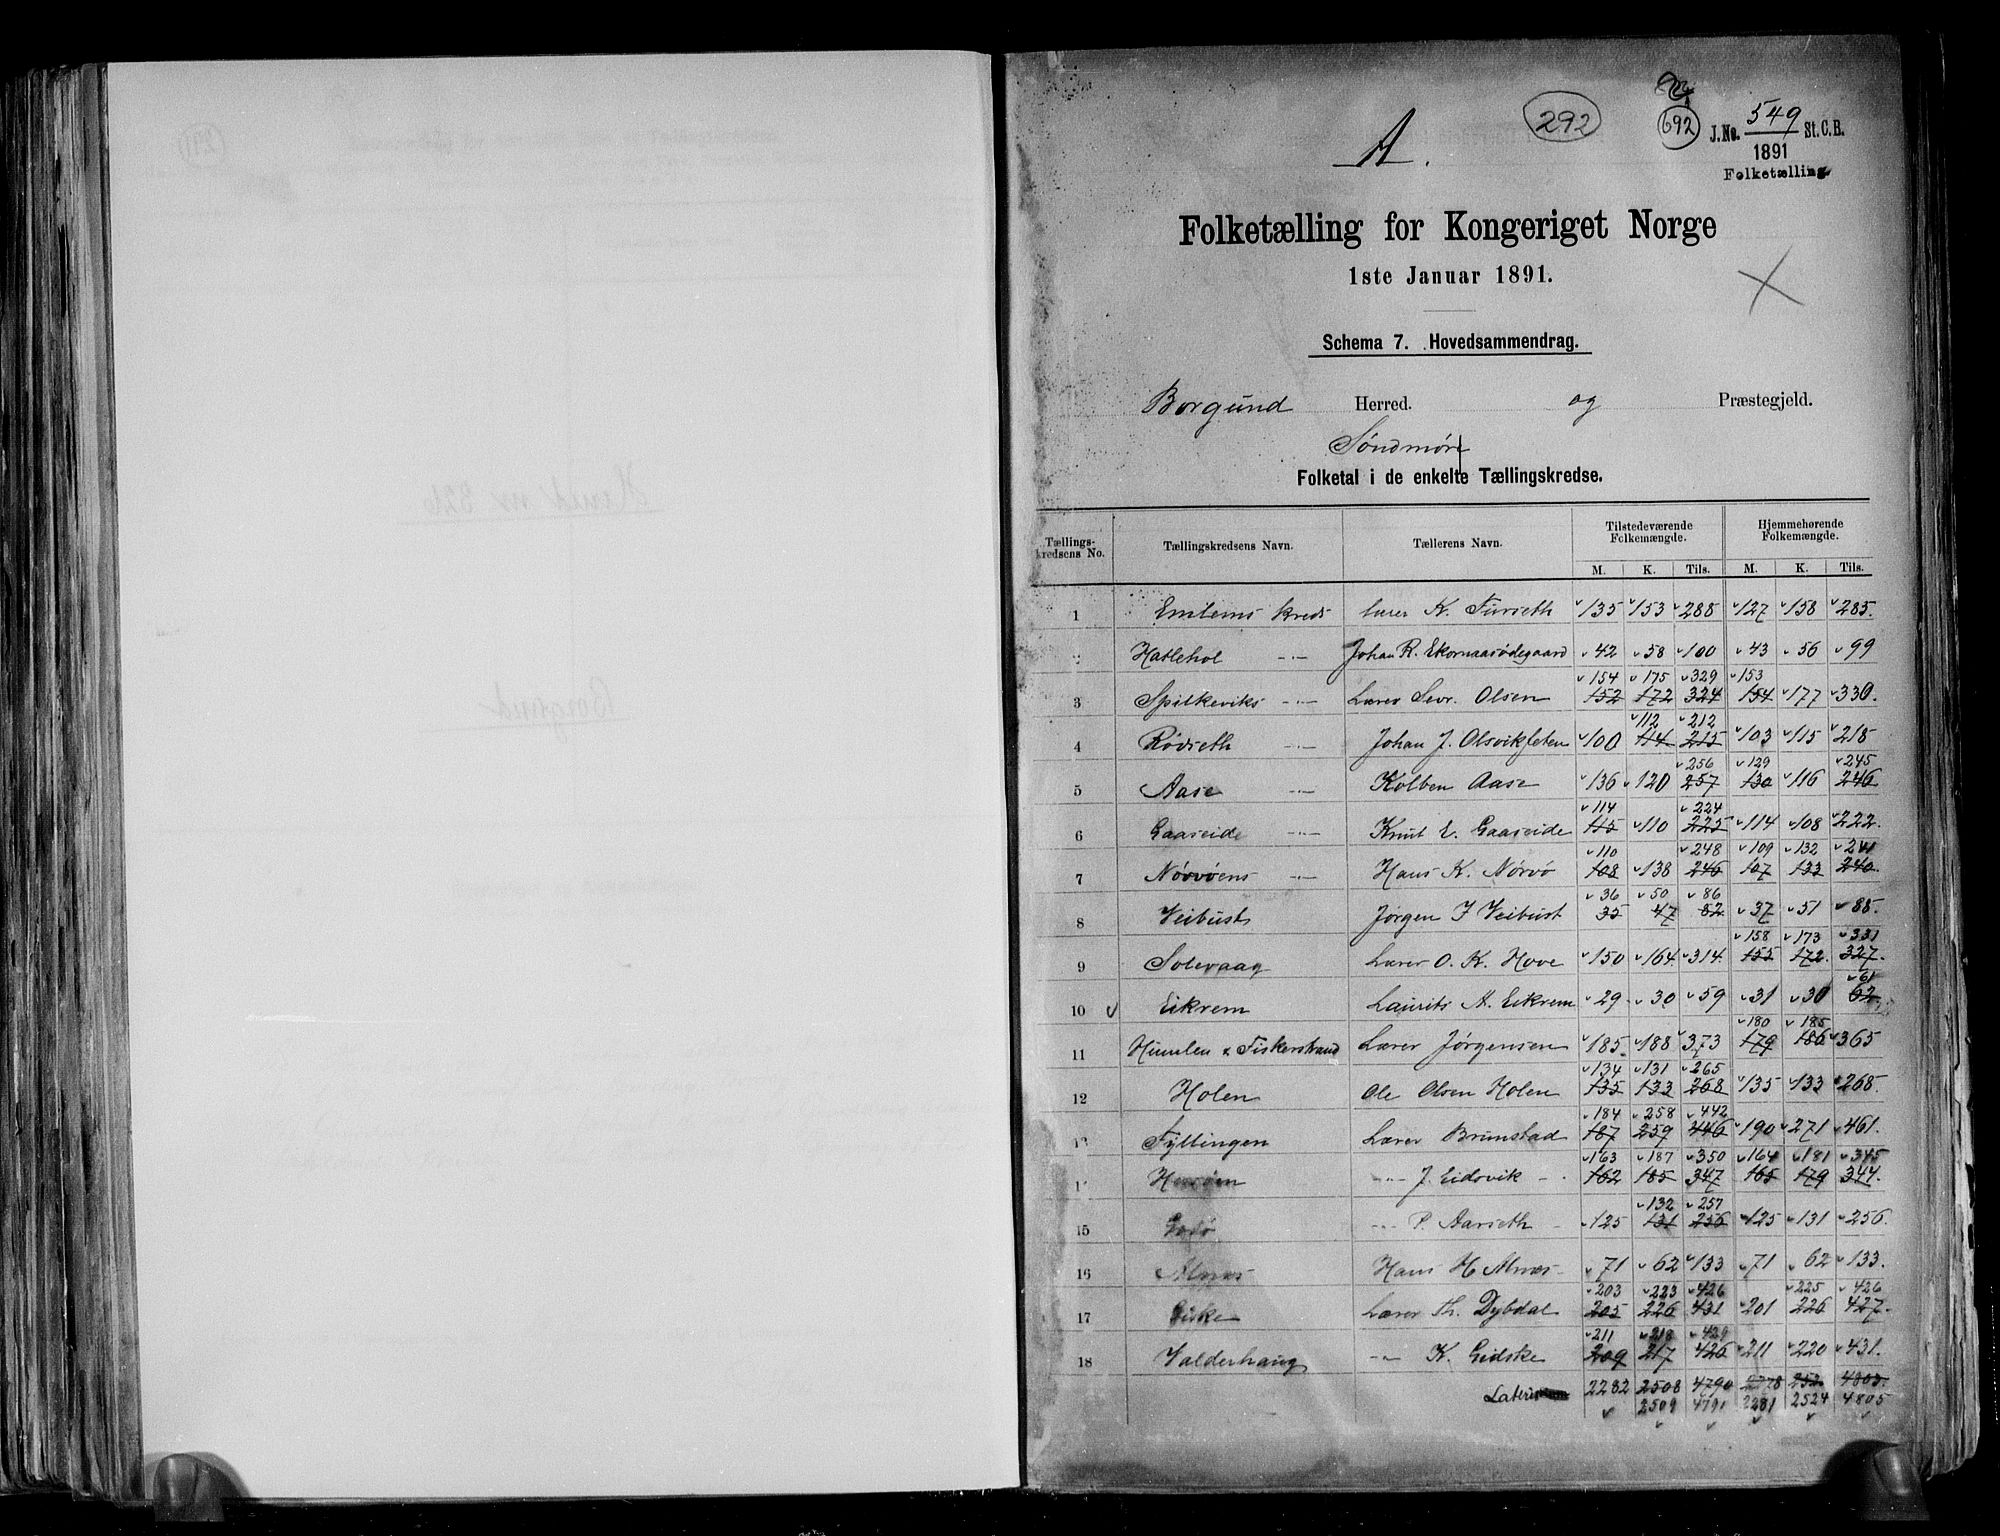 292
692
J. No. 549 St. C. B.
1891
Folketælling
A.
Folketælling for Kongeriget Norge
1ste Januar 1891.
Schema 7. Hovedsammendrag.
Borgund Herred. og Præstegjeld.
Søndmøre
Folketal i de enkelte Tællingskredse.
Tællings-kredsens No. Tællingskredsens Navn. Tællerens Navn. Tilstedeværende Folkemængde. Hjemmehørende Folkemængde.
M. K. Tils. M. K. Tils.
1 Emlems kreds Lærer K. Furseth 135 153 288 127 158 285.
2 Hatlehol -"- Johan R. Ekornaasødegaard 42 58 100 43 56 99
154 175 329 153
3 Spilkeviks -"- Lærer Sevr. Olsen 152 172 324 154 177 330.
112 212
4 Rødseth -"- Johan J. Olsvikfeten 100 114 215 103 115 218
256 129 245
5 Aase -"- Kolben Aase 136 120 257 130 116 246
114 224
6 Gaaseide -"- Knut E. Gaaseide 115 110 225 114 108 222.
110 248 109 132 241
7 Nørvøens -"- Hans K. Nørvø 108 138 246 107 133 240.
36 50 86
8 Veibust Jørgen J Veibust 35 47 82 37 51 88.
158 173 331
9 Solevaag Lærer O. K. Hove 150 164. 314. 155 172. 327.
61
10 Eikrem Laurits A. Eikrem 29 30 59 31 30 62
180 185
11 Humlen & Fiskerstrand Lærer Jørgensen 185. 188 373 179 186 365
134 131 265
12 Holen Ole Olsen Holen 135 133 268 135 133 268.
184 258 442
13 Fyllingen Lærer Brunstad 187 259 446 190 271 461.
163 187 350 164 181 345
1 Hessøen -"- J. Eidsvik 162 185 347 165 179 344.
132 257
15 Godø -"- P. Aarseth 125 131 256 125 131 256.
16 Alnæs Hans H Alnæs 71 62 133 71 62 133.
203 223 426 225 426
17 Giske Lærer Th. Dybdal 205 226 431 201 226 427.
211 218 429
18 Valderhaug -"- K. Gidske 209 217 426 211 220 431.
2282 2508 4790 2278 4803.
2509 4791 2281 2524 4805